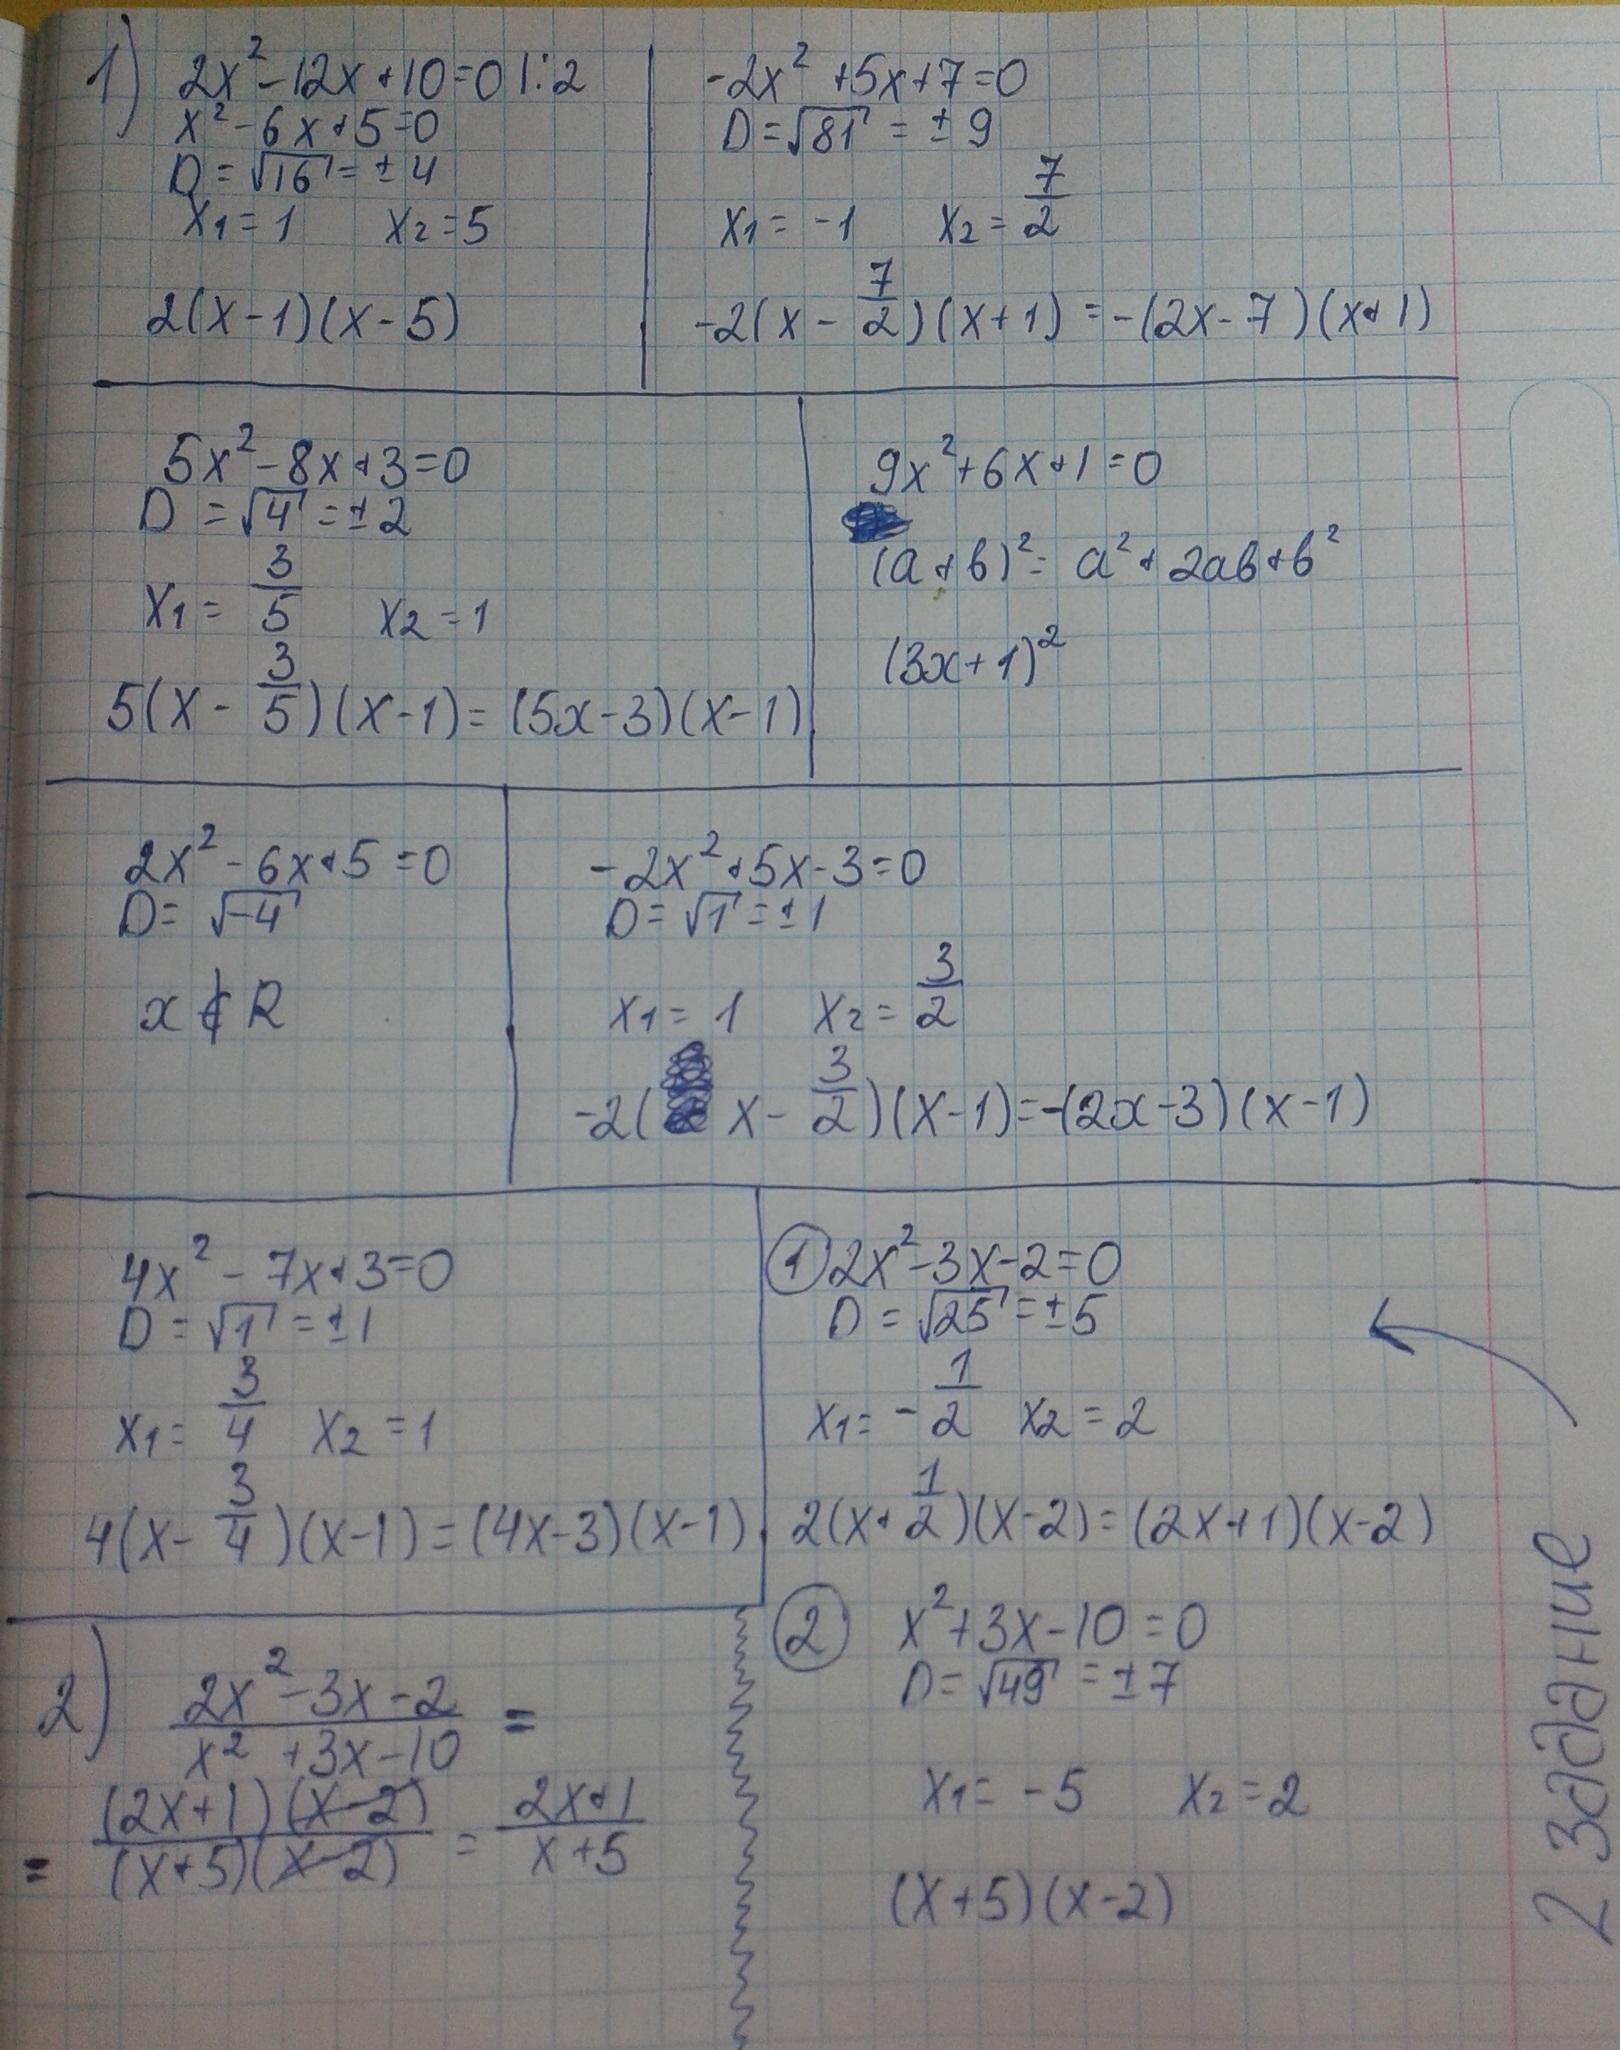 1) 2x² - 12x + 10 = 0 |:2
x² - 6x + 5 = 0
D = √16 = ± 4
x1 = 1 x2 = 5
2(x - 1)(x - 5)
-2x² + 5x + 7 = 0
D = √81 = ± 9
x1 = -1 x2 = 7/2
-2(x - 7/2)(x + 1) = -(2x - 7)(x + 1)
5x² - 8x + 3 = 0
D = √4 = ± 2
x1 = 3/5 x2 = 1
5(x - 3/5)(x - 1) = (5x - 3)(x - 1)
9x² + 6x + 1 = 0
(a + b)² = a² + 2ab + b²
(3x + 1)²
2x² - 6x + 5 = 0
D = √-4
x ∉ R
-2x² + 5x - 3 = 0
D = √1 = ± 1
x1 = 1 x2 = 3/2
-2(x - 3/2)(x - 1) = -(2x - 3)(x - 1)
4x² - 7x + 3 = 0
D = √1 = ± 1
x1 = 3/4 x2 = 1
4(x - 3/4)(x - 1) = (4x - 3)(x - 1)
① 2x² - 3x - 2 = 0
D = √25 = ± 5
x1 = -1/2 x2 = 2
2(x + 1/2)(x - 2) = (2x + 1)(x - 2)
② x² + 3x - 10 = 0
D = √49 = ± 7
x1 = -5 x2 = 2
(x + 5)(x - 2)
2 задание
2) (2x² - 3x - 2)/(x² + 3x - 10) =
= ((2x + 1)(x - 2))/((x + 5)(x - 2)) = (2x + 1)/(x + 5)